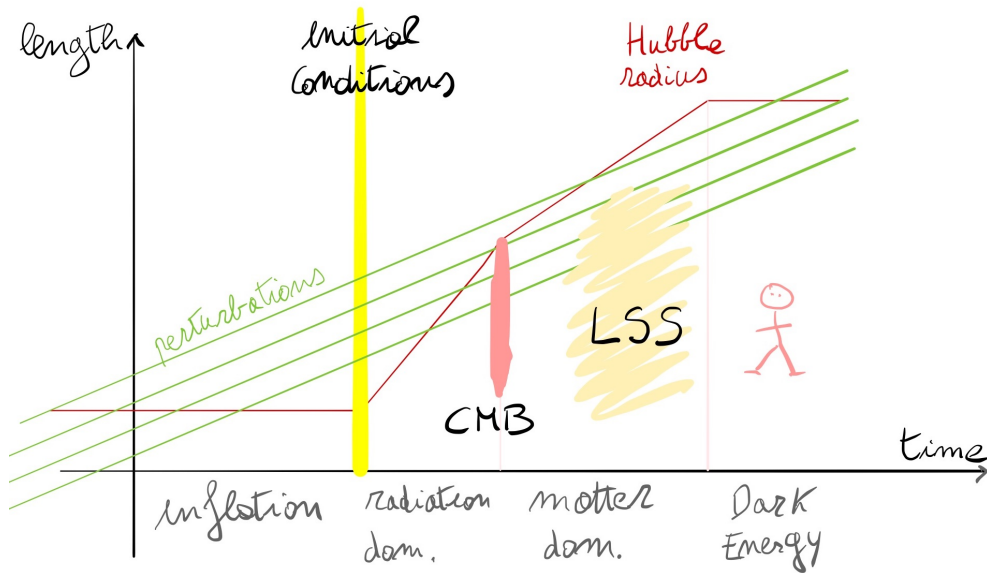 length
initial
conditions
Hubble
radius
perturbations
LSS
CMB
time
inflation
radiation
dom.
matter
dom.
Dark
Energy